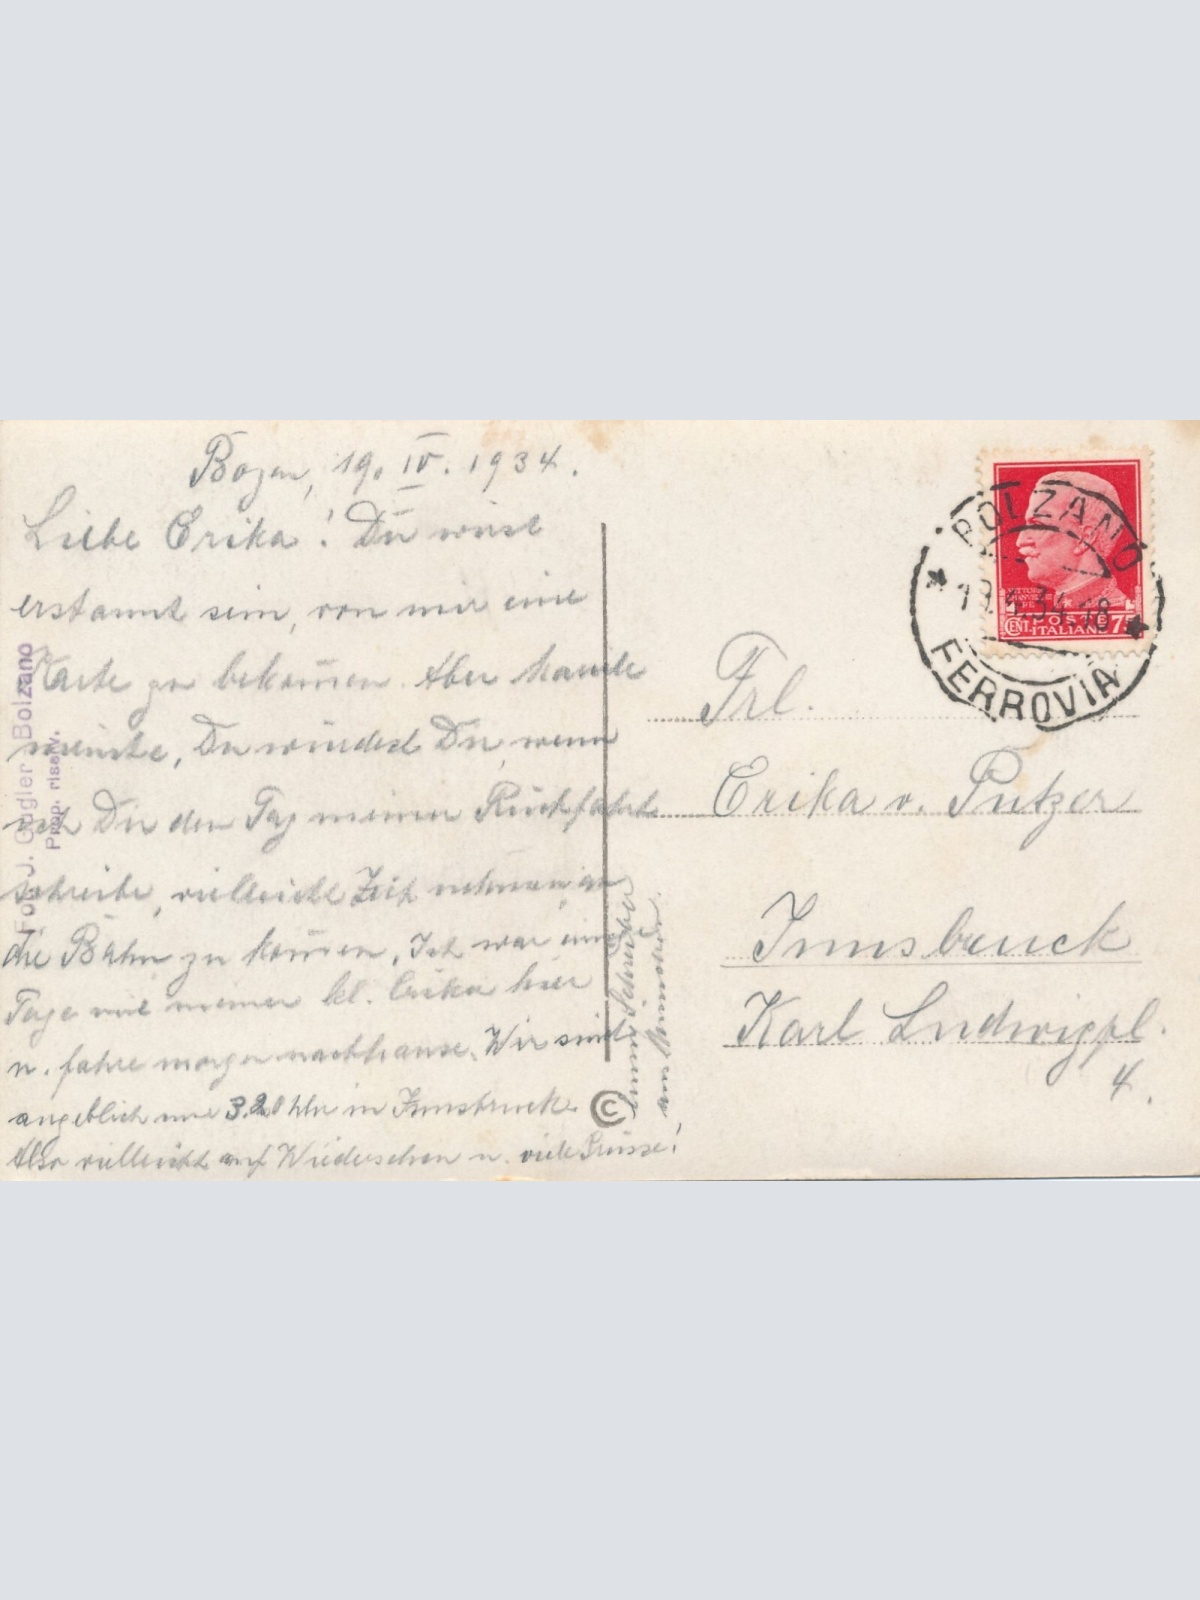 Bozen, 19. IV. 1934.
Liebe Erika! Du wirst
erstaunt sein, von mir eine
Karte zu bekom̅en. Aber
meinte, Du würdest Dir, wenn
ich Dir den Tag meiner Rückfahrt
schreibe, vielleicht Zeit nehmen, an
die Bahn zu kom̅en. Ich war einige
Tage mit meiner kl. Erika hier
u. fahre morgen nachhause. Wir sind
angeblich um 3.20 Uhr in Innsbruck.
Also vielleicht auf Wiedersehen u. viele Grüsse!
Foto J. Gugler Bolzano
Prop. riserv.
©
BOLZANO
19.4.34.18
FERROVIA
POSTE
CENT. ITALIANE 75
Frl.
Erika v. Putzer
Innsbruck
Karl Ludwigpl.
4.